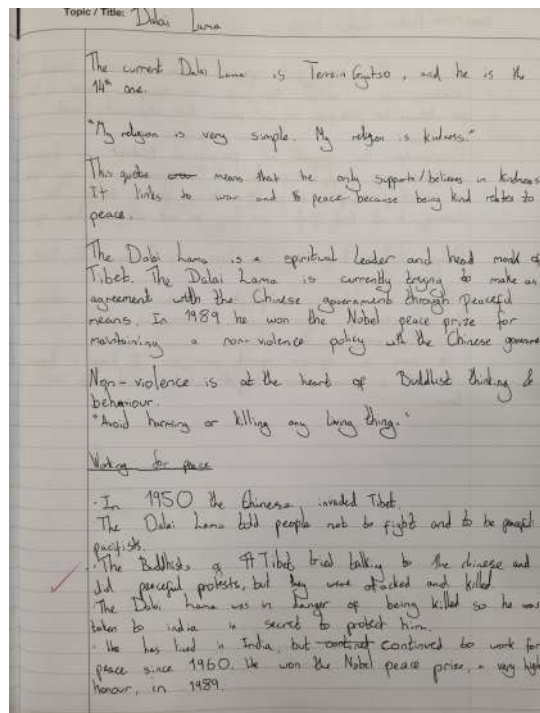 Topic / Title: Dalai Lama
The current Dalai Lama is Tenzin Gyatso, and he is the
14th one.
"My religion is very simple. My religion is kindness."
This quote means that he only supports/believes in kindness
It links to war and peace because being kind relates to
peace.
The Dalai Lama is a spiritual leader and head monk of
Tibet. The Dalai Lama is currently trying to make an
agreement with the Chinese government through peaceful
means. In 1989 he won the Nobel peace prize for
maintaining a non-violence policy with the Chinese governme
Non-violence is at the heart of Buddhist thinking &
behaviour.
"Avoid harming or killing any living thing."
Working for peace
· In 1950 the Chinese invaded Tibet.
The Dalai Lama told people not to fight and to be peaceful
pacifists.
· The Buddhists of Tibet tried talking to the chinese and
did peaceful protests, but they were attacked and killed
The Dalai Lama was in danger of being killed so he was
taken to india in secret to protect him.
· He has lived in India, but continued to work for
peace since 1960. He won the Nobel peace prize, a very high
honour, in 1989.